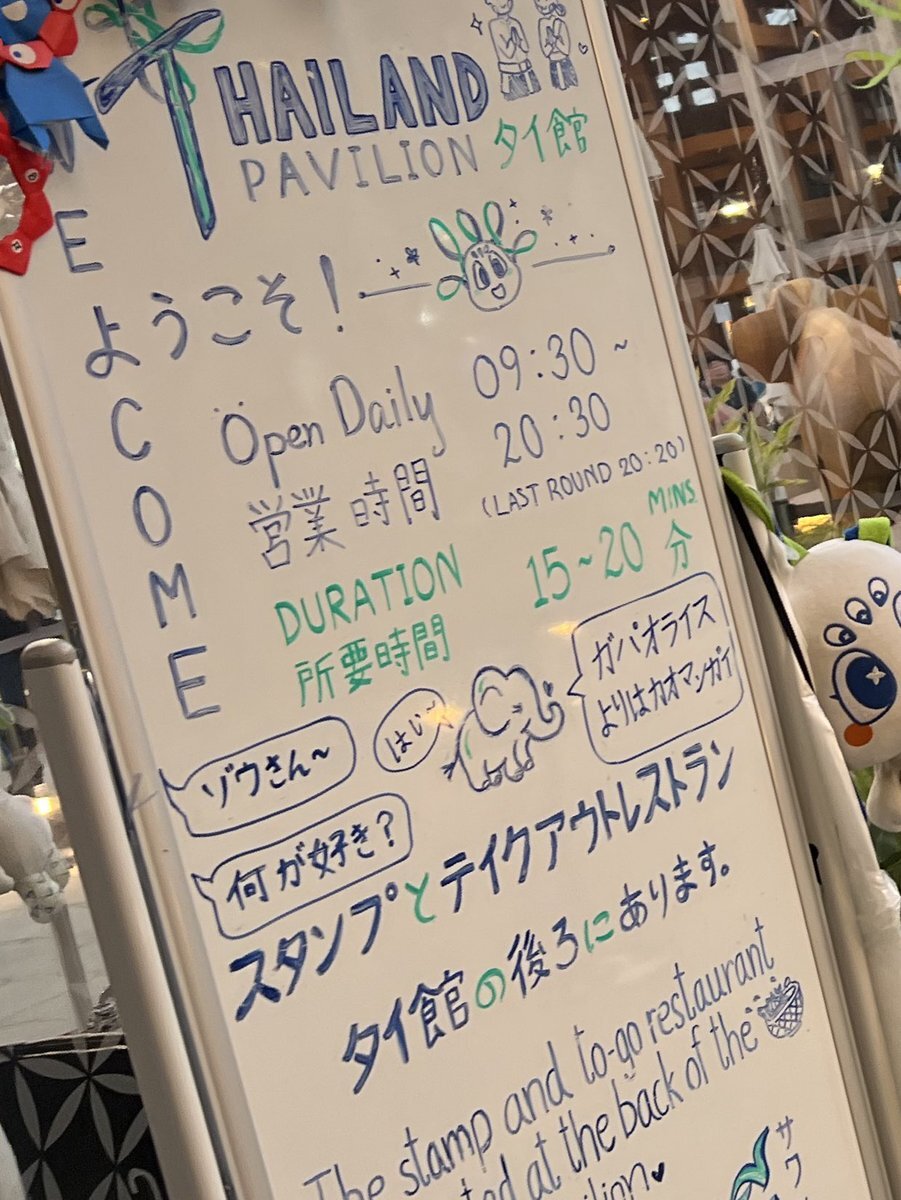 THAILAND
PAVILION タイ館
E
C
O
M
E
ようこそ!
Open Daily 09:30 ~
営業時間 20:30
(LAST ROUND 20:20)
DURATION 15~20 MINS
所要時間 分
ゾウさん~
はい~
ガパオライス
よりはカオマンガイ
何が好き?
スタンプとテイクアウトレストラン
タイ館の後ろにあります。
The stamp and to-go restaurant
at the back of the
サワ